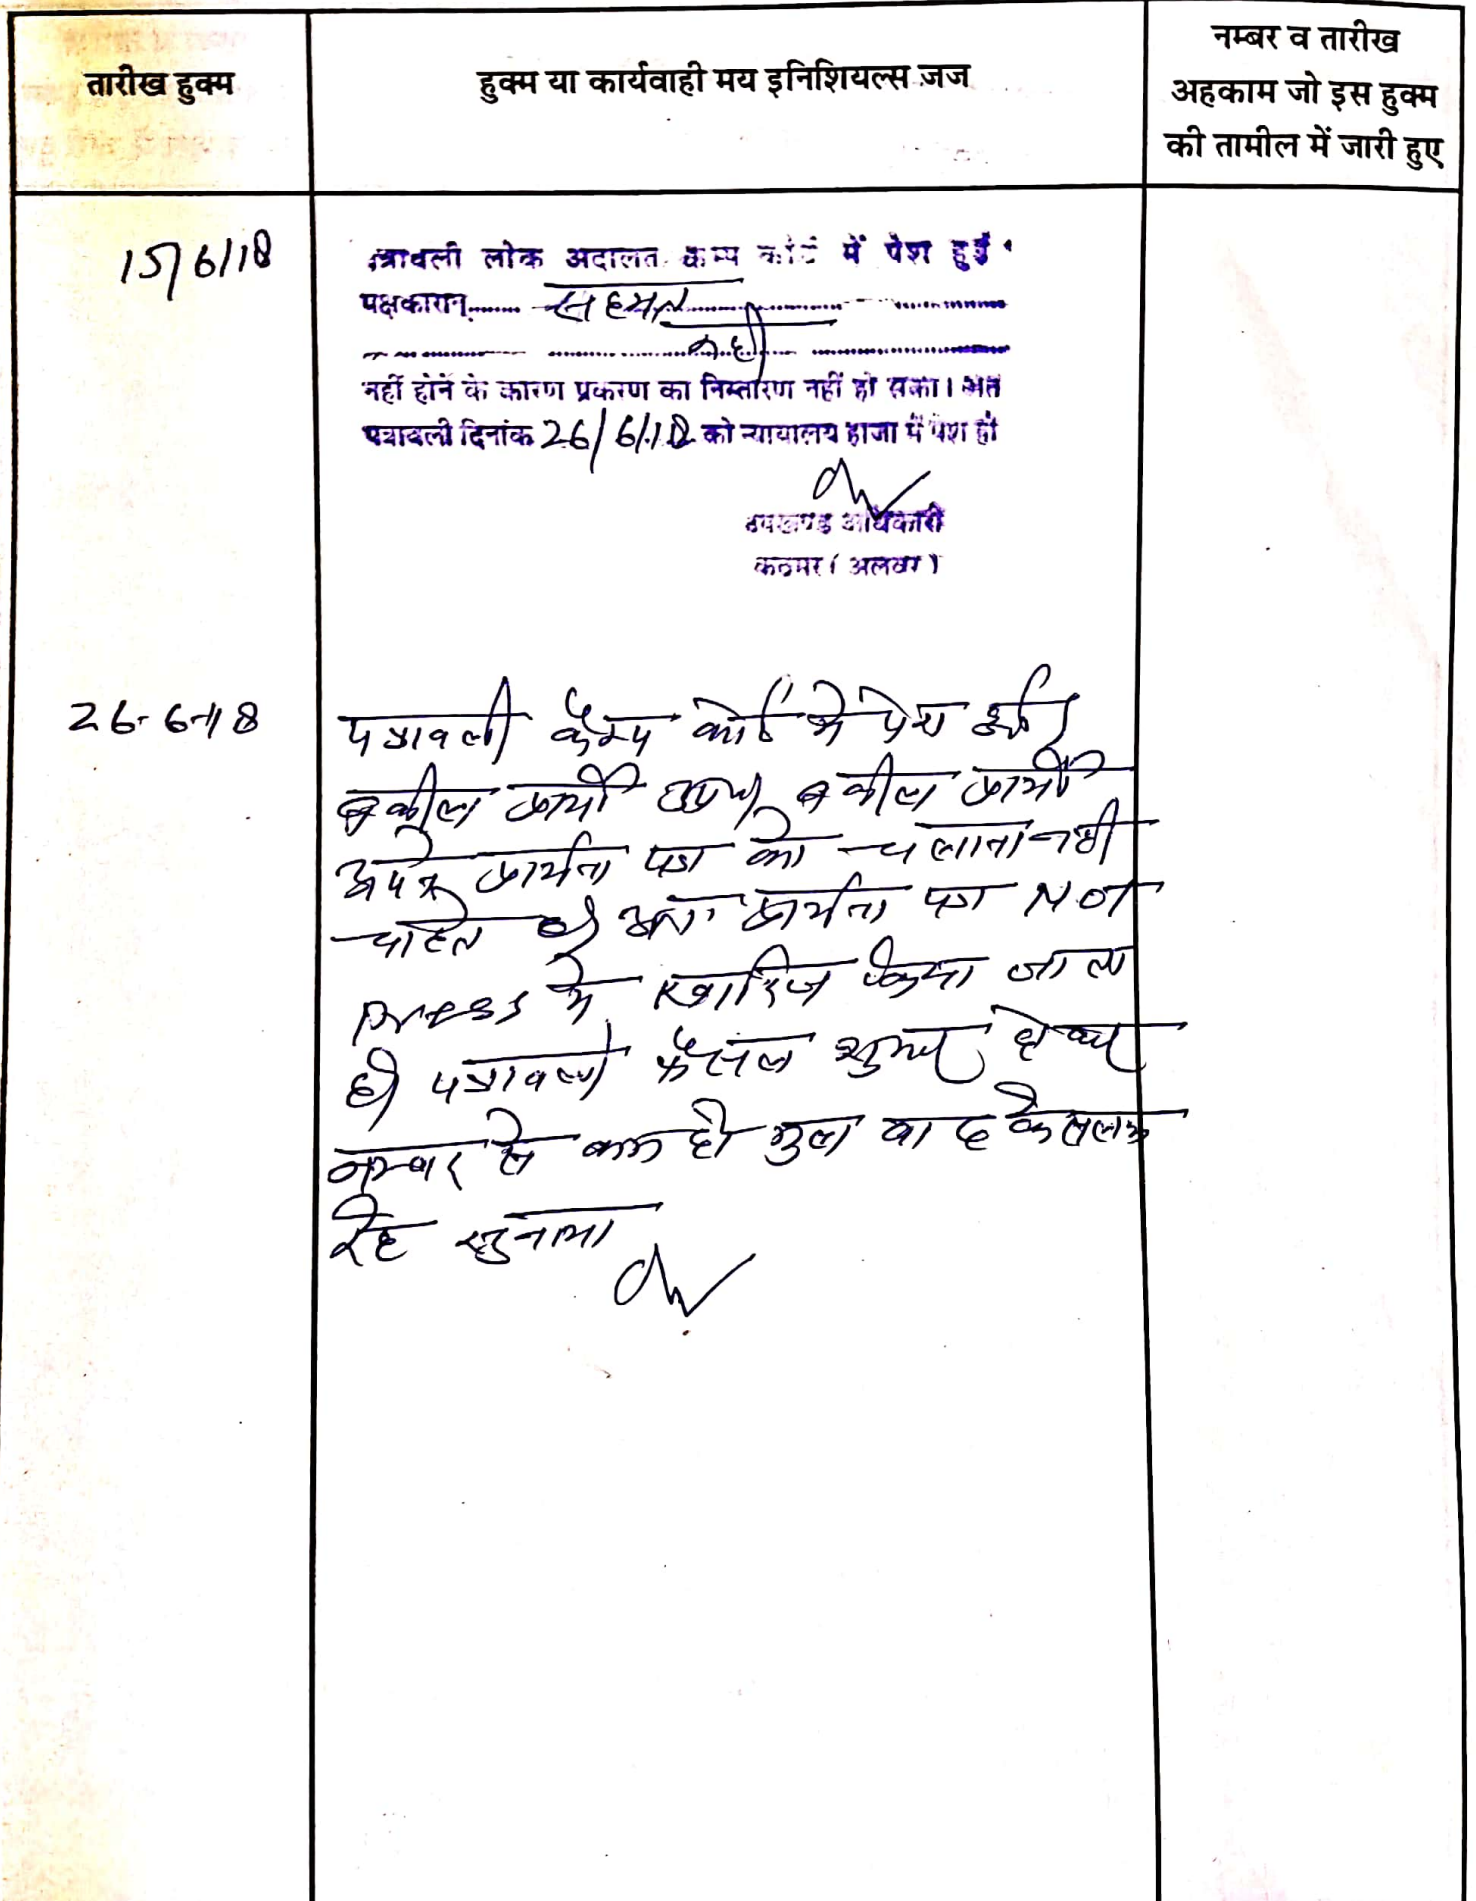 तारीख हुक्म
हुक्म या कार्यवाही मय इनिशियल्स जज
नम्बर व तारीख
अहकाम जो इस हुक्म
की तामील में जारी हुए
15/6/18
पत्रावली लोक अदालत कैम्प कोर्ट में पेश हुई
पक्षकारान सहमत
नहीं होने के कारण प्रकरण का निस्तारण नहीं हो सका। अत
पत्रावली दिनांक 26/6/18 को न्यायालय हाजा में पेश हो
उपखण्ड अधिकारी
कठूमर (अलवर)
26-6-18
पत्रावली कैम्प कोर्ट में पेश हुई।
वकील प्रार्थी उप० वकील प्रार्थी
अपने प्रार्थना पत्र को चलाना नही
चाहते है अतः प्रार्थना पत्र NOT
press मे खारिज किया जाता
है पत्रावली फैसल शुमार होकर
नम्बर से कम हो मुल वाद के सलग्न
रहे सुनाया